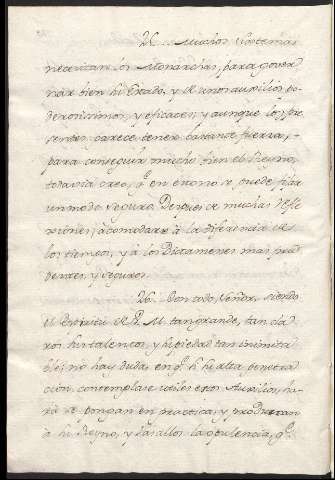 25. Muchos sistemas
necesitan los Monarcas, para gover
nar bien su Estado, y de unos auxilios po
derosissimos, y eficaces; y aunque los pre
sentes parece tener bastante fuerza,
para conseguir mucho bien el Reyno,
todavia creo, q en esto no se puede fijar
un modo seguro. Despues de muchas refle
xiones, acomodarse à la diferencia de
los tiempos, y à los Dictamenes mas pru
dentes, y seguros.
26. Con todo, Señor, siendo
el Espiritu de V. M. tan grande, tan cla
ros sus talentos, y su piedad tan inimita
ble; no hay duda en q si su alta penetra
cion contemplase utiles estos Auxilios, ha
rá se pongan en practica, y produzcan
à su Reyno, y Vasallos la opulencia, q.